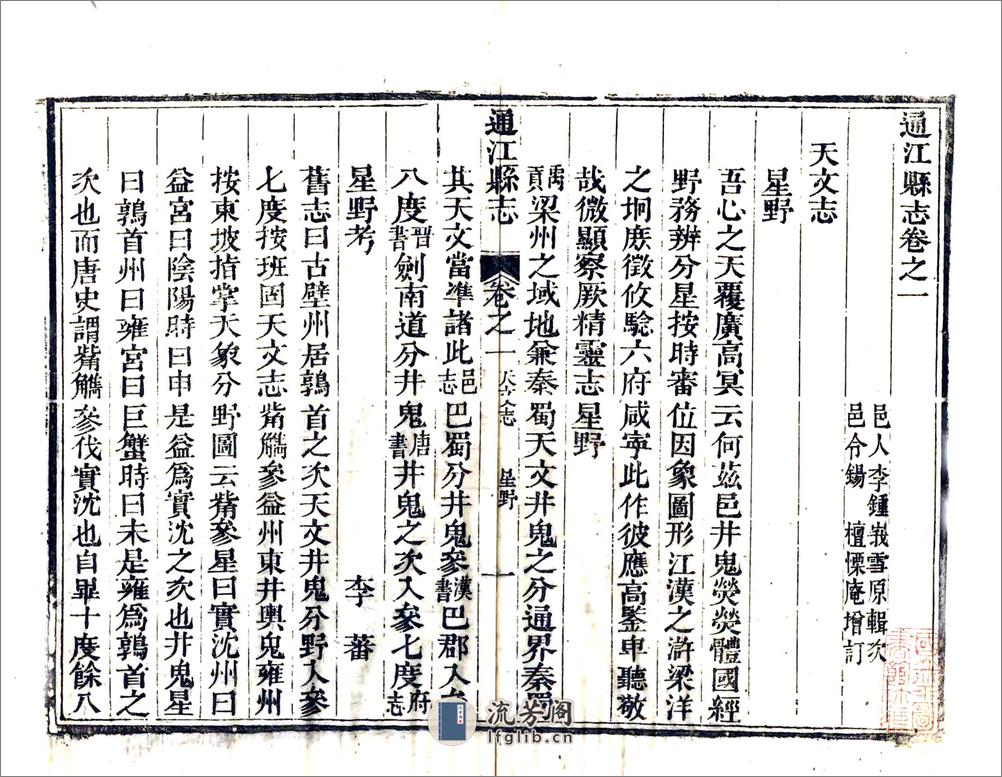 通江縣志卷之一
邑人李鍾峩雪原輯次
邑令錫檀慄庵增訂
天文志
星野
吾心之天覆廣高冥云何茲邑井鬼熒熒體國經
野務辨分星按時審位因象圖形江漢之滸梁洋
之坰庶徵攸驗六府咸寧此作彼應高鑒卑聽敬
哉微顯察厥精靈志星野
禹貢梁州之域地兼秦蜀天文井鬼之分通界秦蜀
通江縣志
卷之一
天文志
星野
一
其天文當準諸此邑志巴蜀分井鬼參漢書巴郡入參
八度晉書劍南道分井鬼唐書井鬼之次入參七度府志
星野考
李蕃
舊志曰古壁州居鶉首之次天文井鬼分野入參
七度按班固天文志觜觿參益州東井輿鬼雍州
按東坡指掌天象分野圖云觜參星曰實沈州曰
益宮曰陰陽時曰申是益爲實沈之次也井鬼星
曰鶉首州曰雍宮曰巨蟹時曰未是雍爲鶉首之
次也而唐史謂觜觿參伐實沈也自畢十度餘八
流芳阁
lfglib.cn